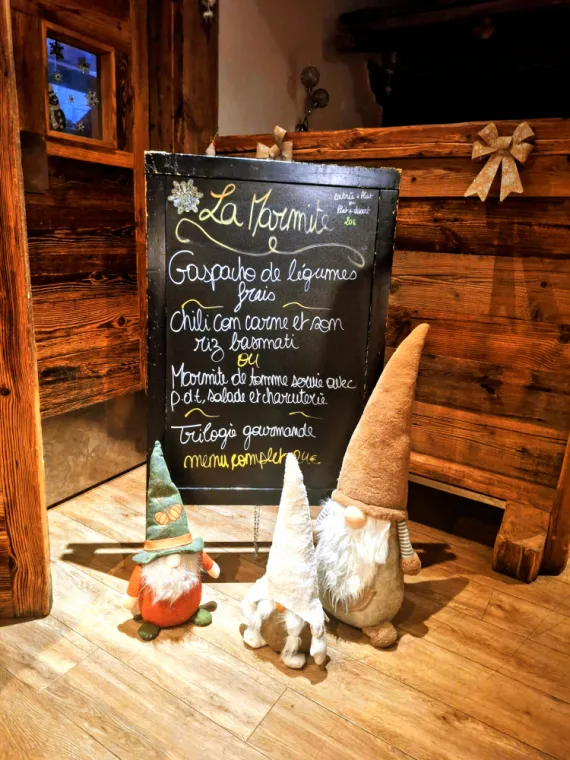 La Marmite
entrée + Plat
ou
Plat + dessert
20€
Gaspacho de légumes
frais
chili con carne et son
riz basmati
ou
Marmite de tomme servie avec
p.d.t, salade et charcuterie
Trilogie gourmande
menu complet